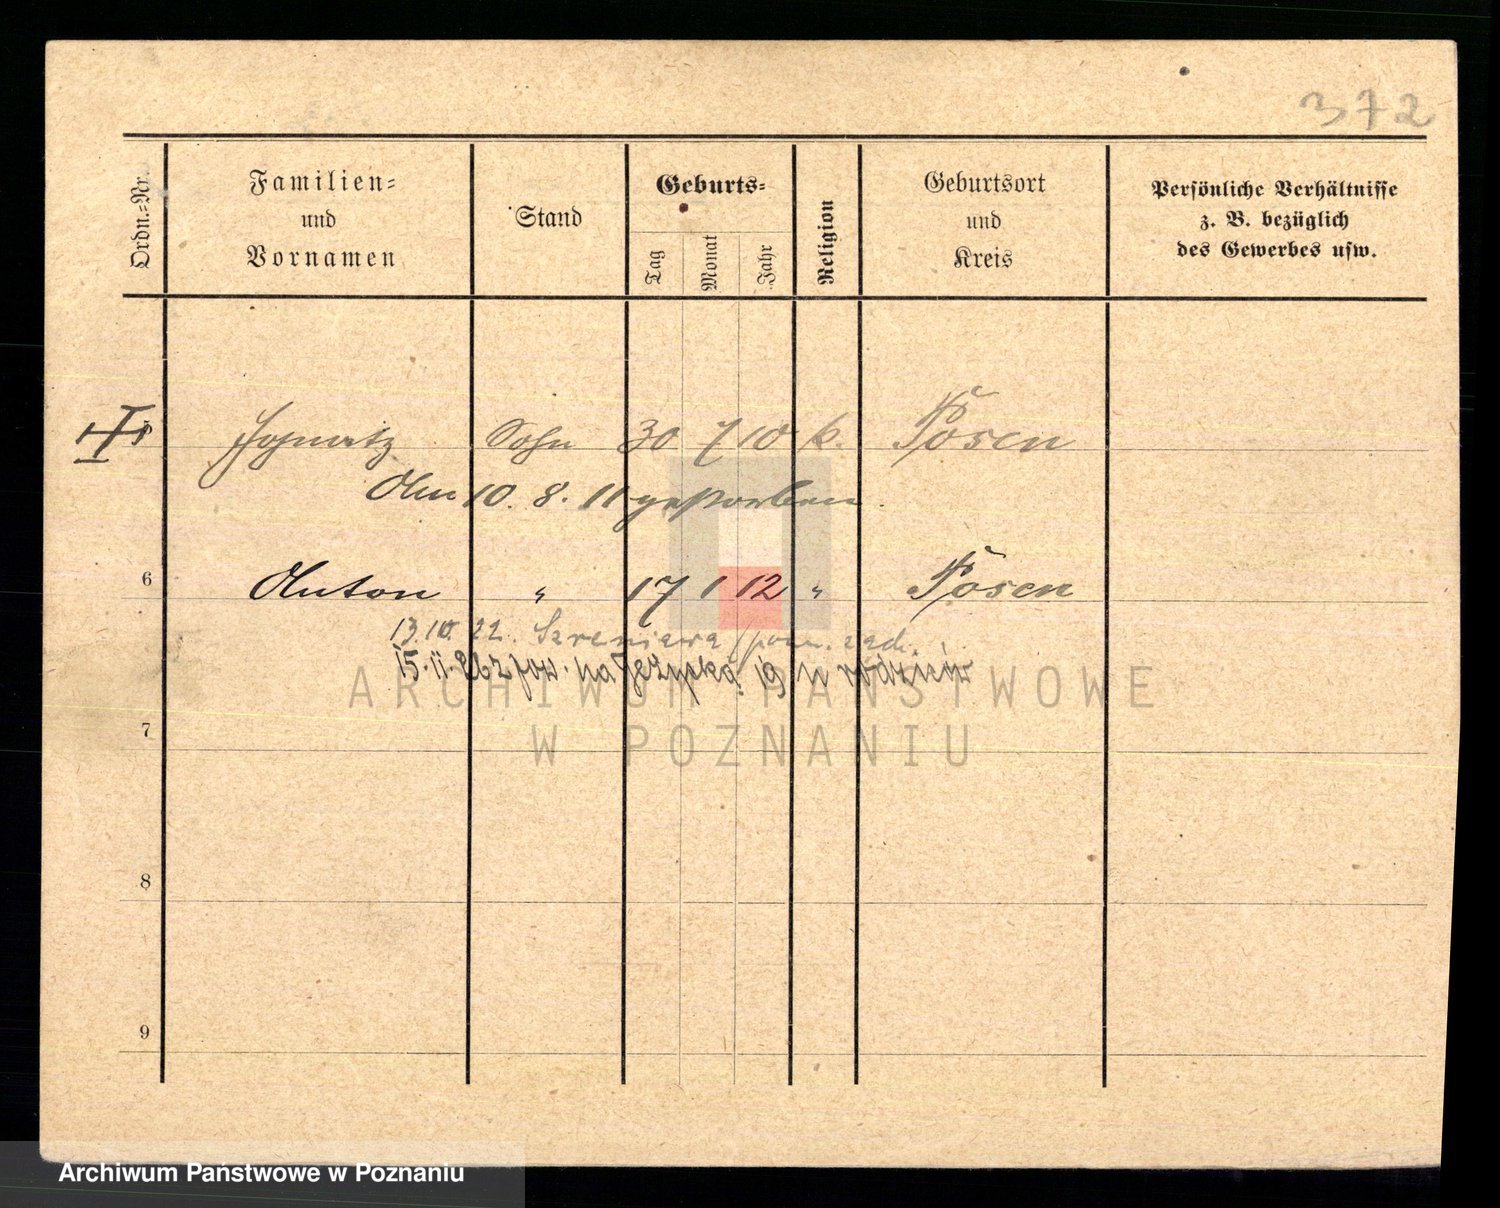 372
Ordn.=Nr.
Familien=
und
Vornamen
Stand
Geburts=
Tag
Monat
Jahr
Religion
Geburtsort
und
Kreis
Persönliche Verhältnisse
z. B. bezüglich
des Gewerbes usw.
5 Ignatz Sohn 30 7 10 k. Posen
Am 10. 8. 11 gestorben.
6 Anton " 17 1 12 " Posen
13.10. 22. Szreniawa pow. zach.
15.11. na 19 u
ARCHIWUM PAŃSTWOWE
W POZNANIU
7
8
9
Archiwum Państwowe w Poznaniu